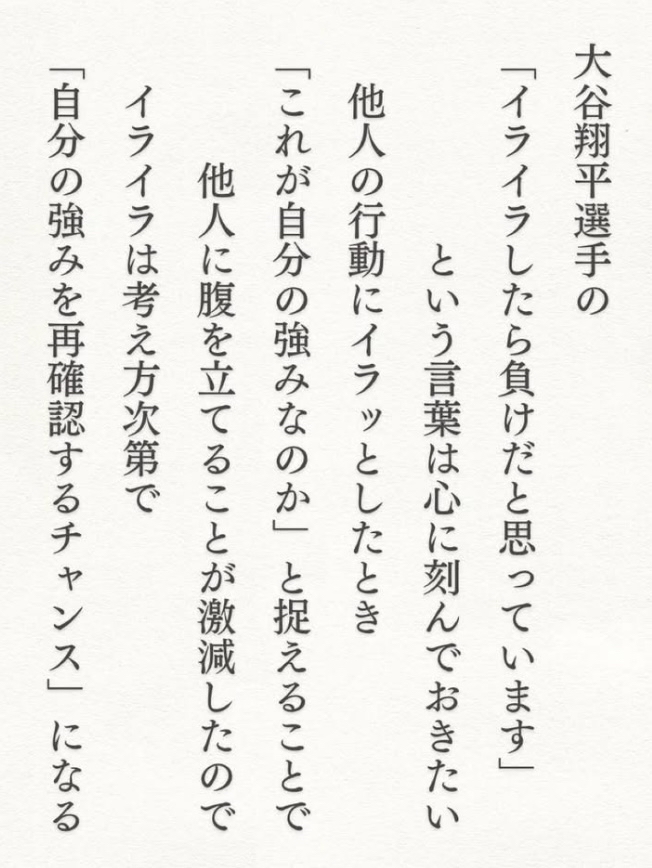 大谷翔平選手の
「イライラしたら負けだと思っています」
という言葉は心に刻んでおきたい
他人の行動にイラッとしたとき
「これが自分の強みなのか」と捉えることで
他人に腹を立てることが激減したので
イライラは考え方次第で
「自分の強みを再確認するチャンス」になる